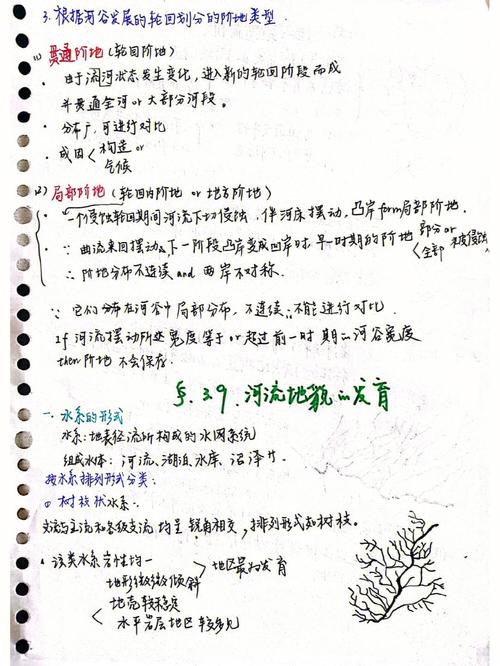 3. 根据河谷发展的轮回划分的阶地类型.
(1) 贯通阶地(轮回阶地)
· 由于河状态发生变化,进入新的轮回阶段而成
并贯通全河or大部分河段。
· 分布广,可进行对比
· 成因< 构造 or
气候
(2) 局部阶地(轮回内阶地 or 地方阶地)
· 一个侵蚀轮回期间河流下切侵蚀,伴河床摆动,凸岸form局部阶地.
· ∵ 曲流来回摆动,下一阶段凸岸变成凹岸时 早一时期的阶地 < 部分or
全部 被侵蚀
∴ 阶地分布不连续 and 两岸不对称.
∵ 它们分布在河谷中局部分布,不连续∴不能进行对比.
If 河流摆动所达宽度等于or超过前一时期河谷宽度
then 阶地不会保存.
§. 3.9. 河流地貌的发育
一. 水系的形式
水系:地表径流所构成的水网系统
组成水体:河流、湖泊、水库、沼泽
按水系排列形式分类:
① 树枝状水系:
支流与主流和各级支流均呈锐角相交,排列形式如树枝。
该类水系岩性均一
地形微微倾斜 > 地区最为发育
< 地壳较稳定
水平岩层地区 较多见